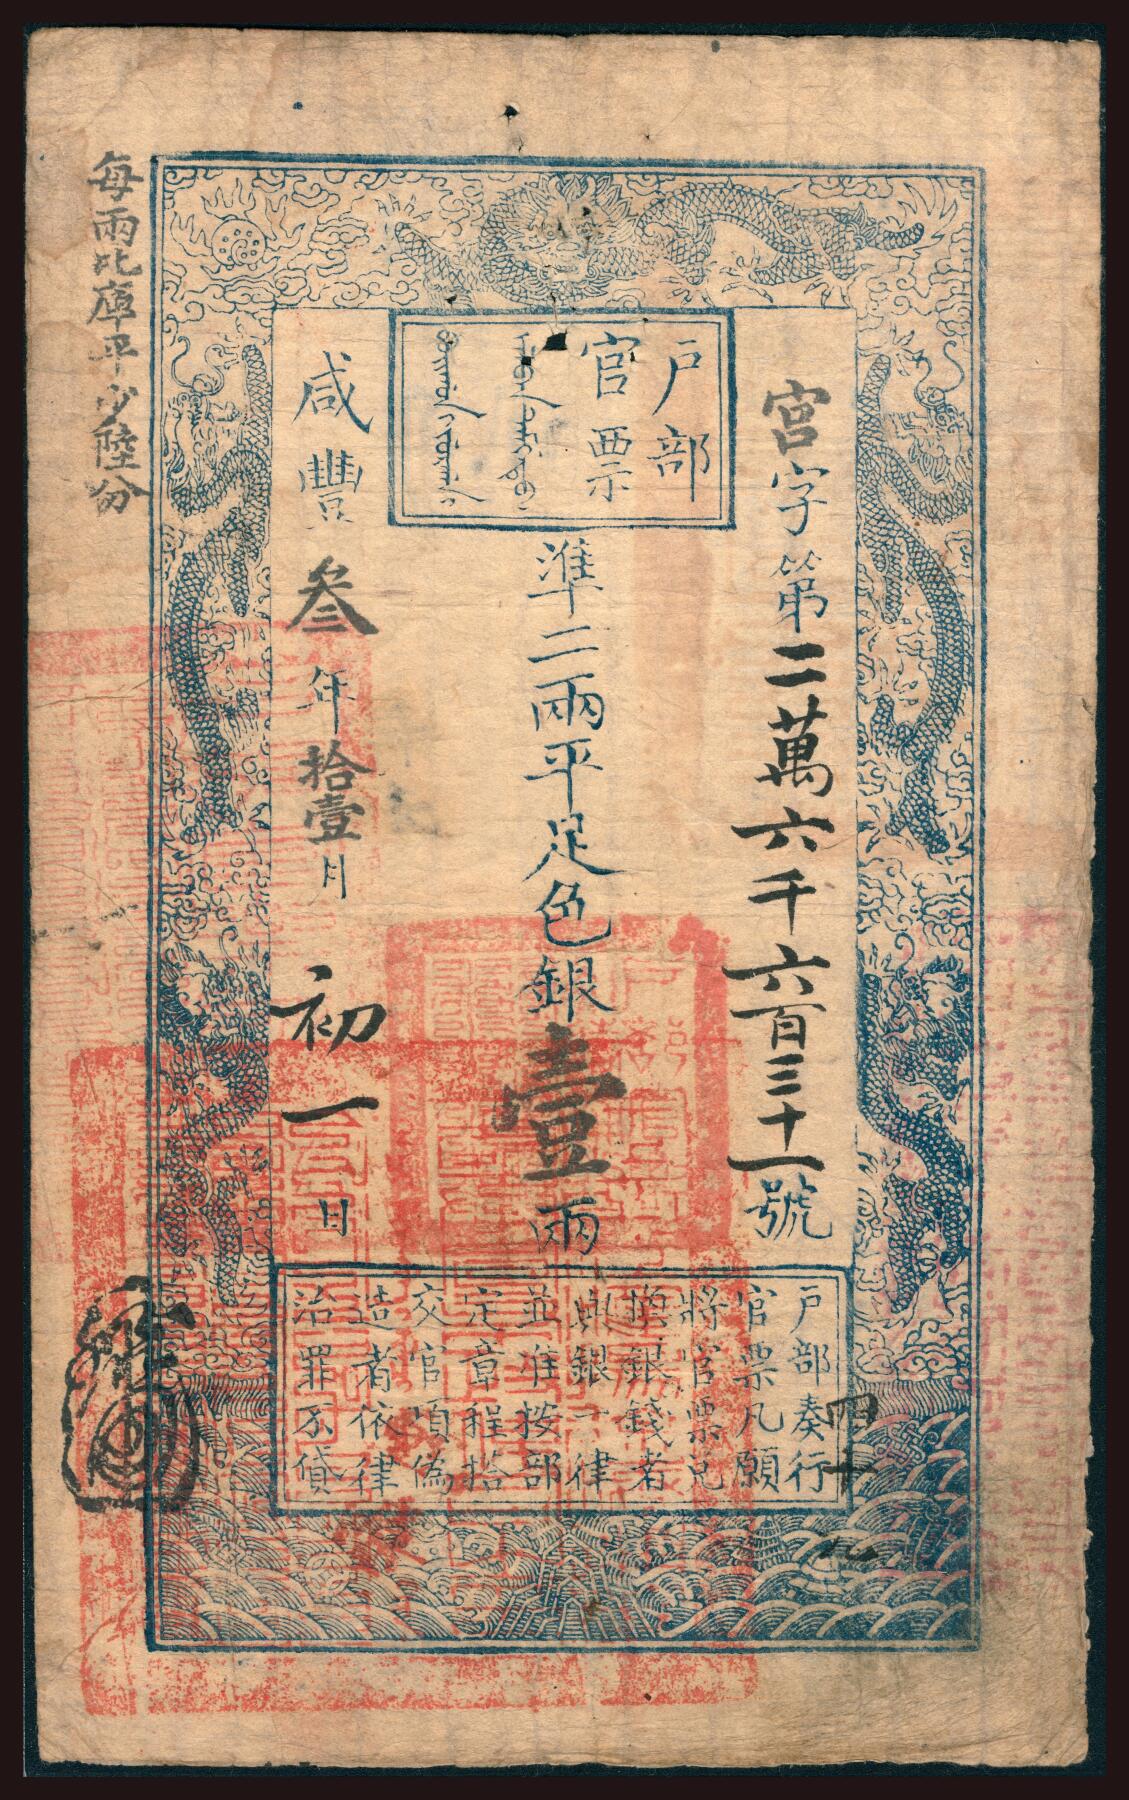 戶部
官票
宮字第二萬六千六百三十一號
準二兩平足色銀壹兩
咸豐叁年拾壹月初一日
每兩比庫平少陸分
戶部奏行
官票凡願
將官票兌
換銀錢者
與銀一律
並准按部
定章程搭
交官項偽
造者依律
治罪不貸
四十九